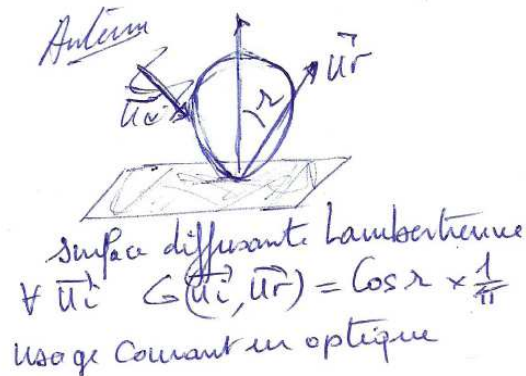 u⃗i
u⃗r
r
surface diffusante Lambertienne
∀ u⃗i G(u⃗i, u⃗r) = Cos r × 1/π
usage courant en optique